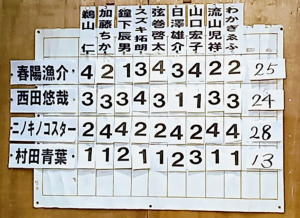 鵜山 仁
加藤ちか
鐘下辰男
スズキ拓朗
弦巻啓太
日澤雄介
山口宏子
流山児祥
わかぎゑふ
春陽漁介 4 2 1 3 4 3 4 2 2 25
西田悠哉 3 3 3 4 3 1 1 3 3 24
ニノキノコスター 2 4 4 2 2 4 2 4 4 28
村田青葉 1 1 2 1 1 2 3 1 1 13